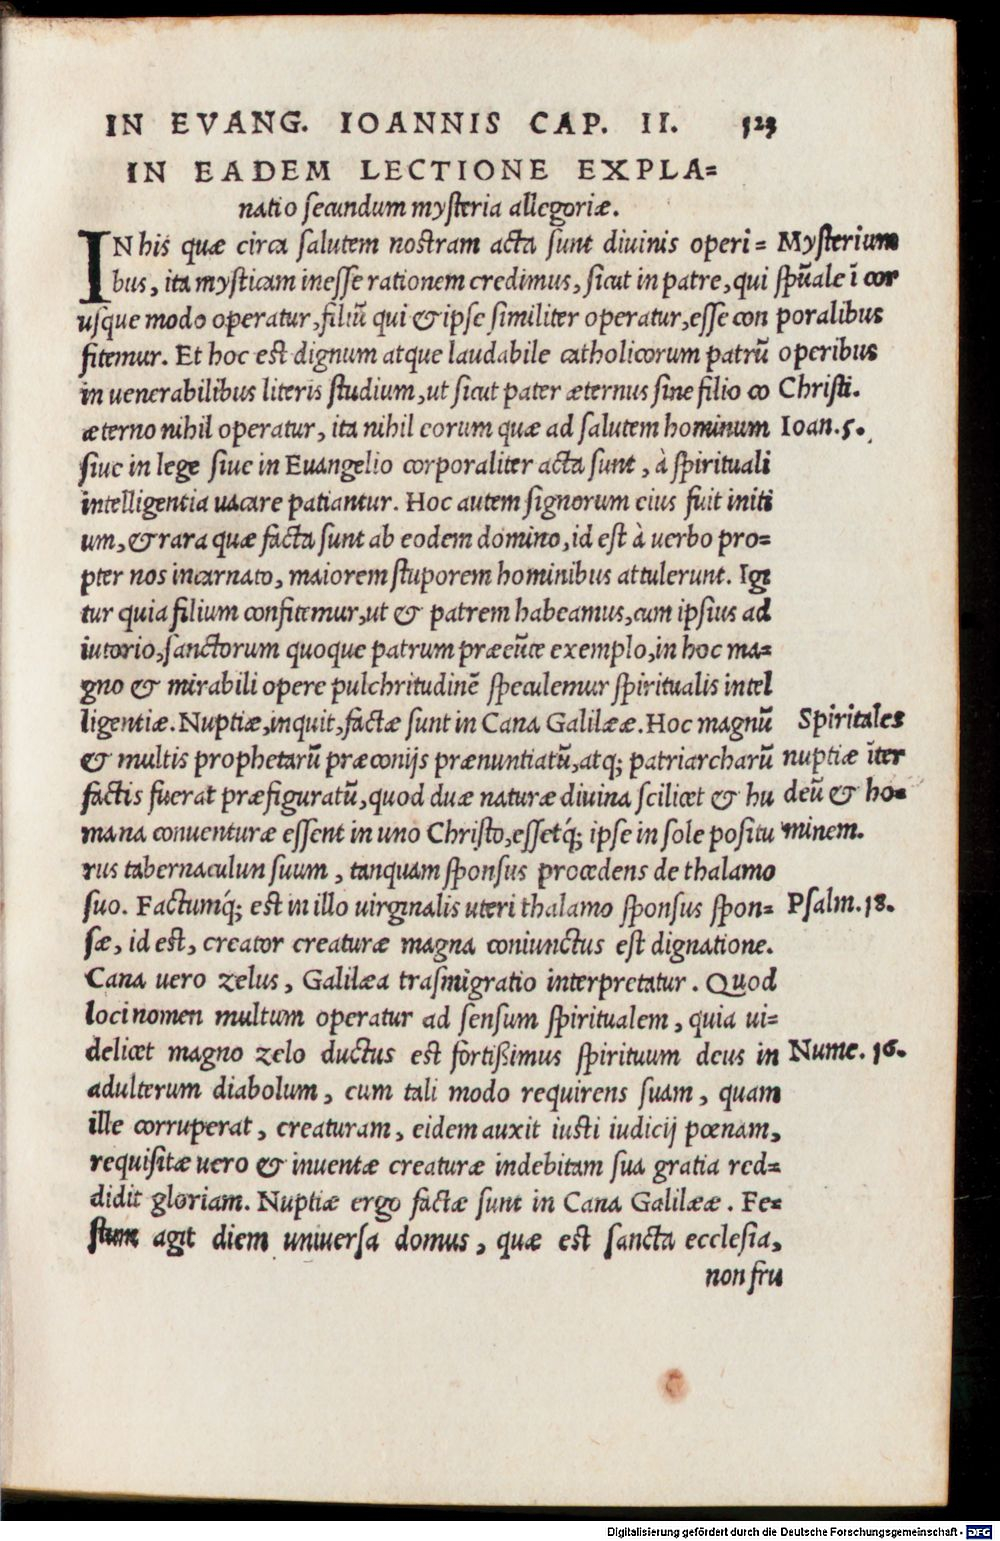 IN EVANG. IOANNIS CAP. II. 523
IN EADEM LECTIONE EXPLA=
natio ſecundum myſteria allegoriæ.
IN his quæ circa ſalutem noſtram acta ſunt diuinis operi= Myſterium
bus, ita myſticam ineſſe rationem credimus, ſicut in patre, qui ſpūale ī cor
uſque modo operatur, filiū qui & ipſe ſimiliter operatur, eſſe con poralibus
fitemur. Et hoc eſt dignum atque laudabile catholicorum patrū operibus
in uenerabilibus literis ſtudium, ut ſicut pater æternus ſine filio co Chriſti.
æterno nihil operatur, ita nihil eorum quæ ad ſalutem hominum Ioan.5.
ſiue in lege ſiue in Euangelio corporaliter acta ſunt, à ſpirituali
intelligentia uacare patiantur. Hoc autem ſignorum eius fuit initi
um, & rara quæ facta ſunt ab eodem domino, id eſt à uerbo pro=
pter nos incarnato, maiorem ſtuporem hominibus attulerunt. Igi
tur quia filium confitemur, ut & patrem habeamus, cum ipſius ad
iutorio, ſanctorum quoque patrum præeūte exemplo, in hoc ma=
gno & mirabili opere pulchritudinē ſpeculemur ſpiritualis intel
ligentiæ. Nuptiæ, inquit, factæ ſunt in Cana Galilææ. Hoc magnū Spiritales
& multis prophetarū præconijs prænuntiatū, atq; patriarcharū nuptiæ īter
factis fuerat præfiguratū, quod duæ naturæ diuina ſcilicet & hu deū & ho=
mana conuenturæ eſſent in uno Chriſto, eſſetq́; ipſe in ſole poſitu minem.
rus tabernaculun ſuum, tanquam ſponſus procedens de thalamo
ſuo. Factumq́; eſt in illo uirginalis uteri thalamo ſponſus ſpon= Pſalm.18.
ſæ, id eſt, creator creaturæ magna coniunctus eſt dignatione.
Cana uero zelus, Galilæa traſmigratio interpretatur. Quod
loci nomen multum operatur ad ſenſum ſpiritualem, quia ui=
delicet magno zelo ductus eſt fortißimus ſpirituum deus in Nume. 16.
adulterum diabolum, cum tali modo requirens ſuam, quam
ille corruperat, creaturam, eidem auxit iuſti iudicij pœnam,
requiſitæ uero & inuentæ creaturæ indebitam ſua gratia red=
didit gloriam. Nuptiæ ergo factæ ſunt in Cana Galilææ. Fe=
ſtum agit diem uniuerſa domus, quæ eſt ſancta eccleſia,
non fru
Digitalisierung gefördert durch die Deutsche Forschungsgemeinschaft - DFG